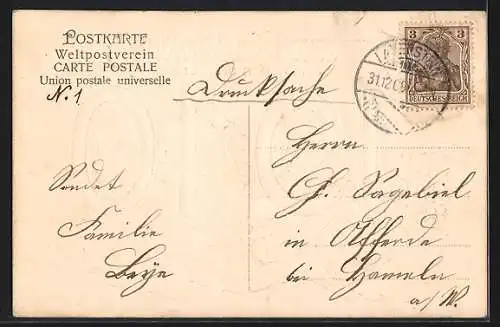 POSTKARTE
Weltpostverein
CARTE POSTALE
Union postale universelle
N. 1
Drucksache
3 3
DEUTSCHES REICH
31.12.0
Herrn
Ch. Sagebiel
in Afferde
bei Hameln
a/W.
Sendet
Familie
Beye